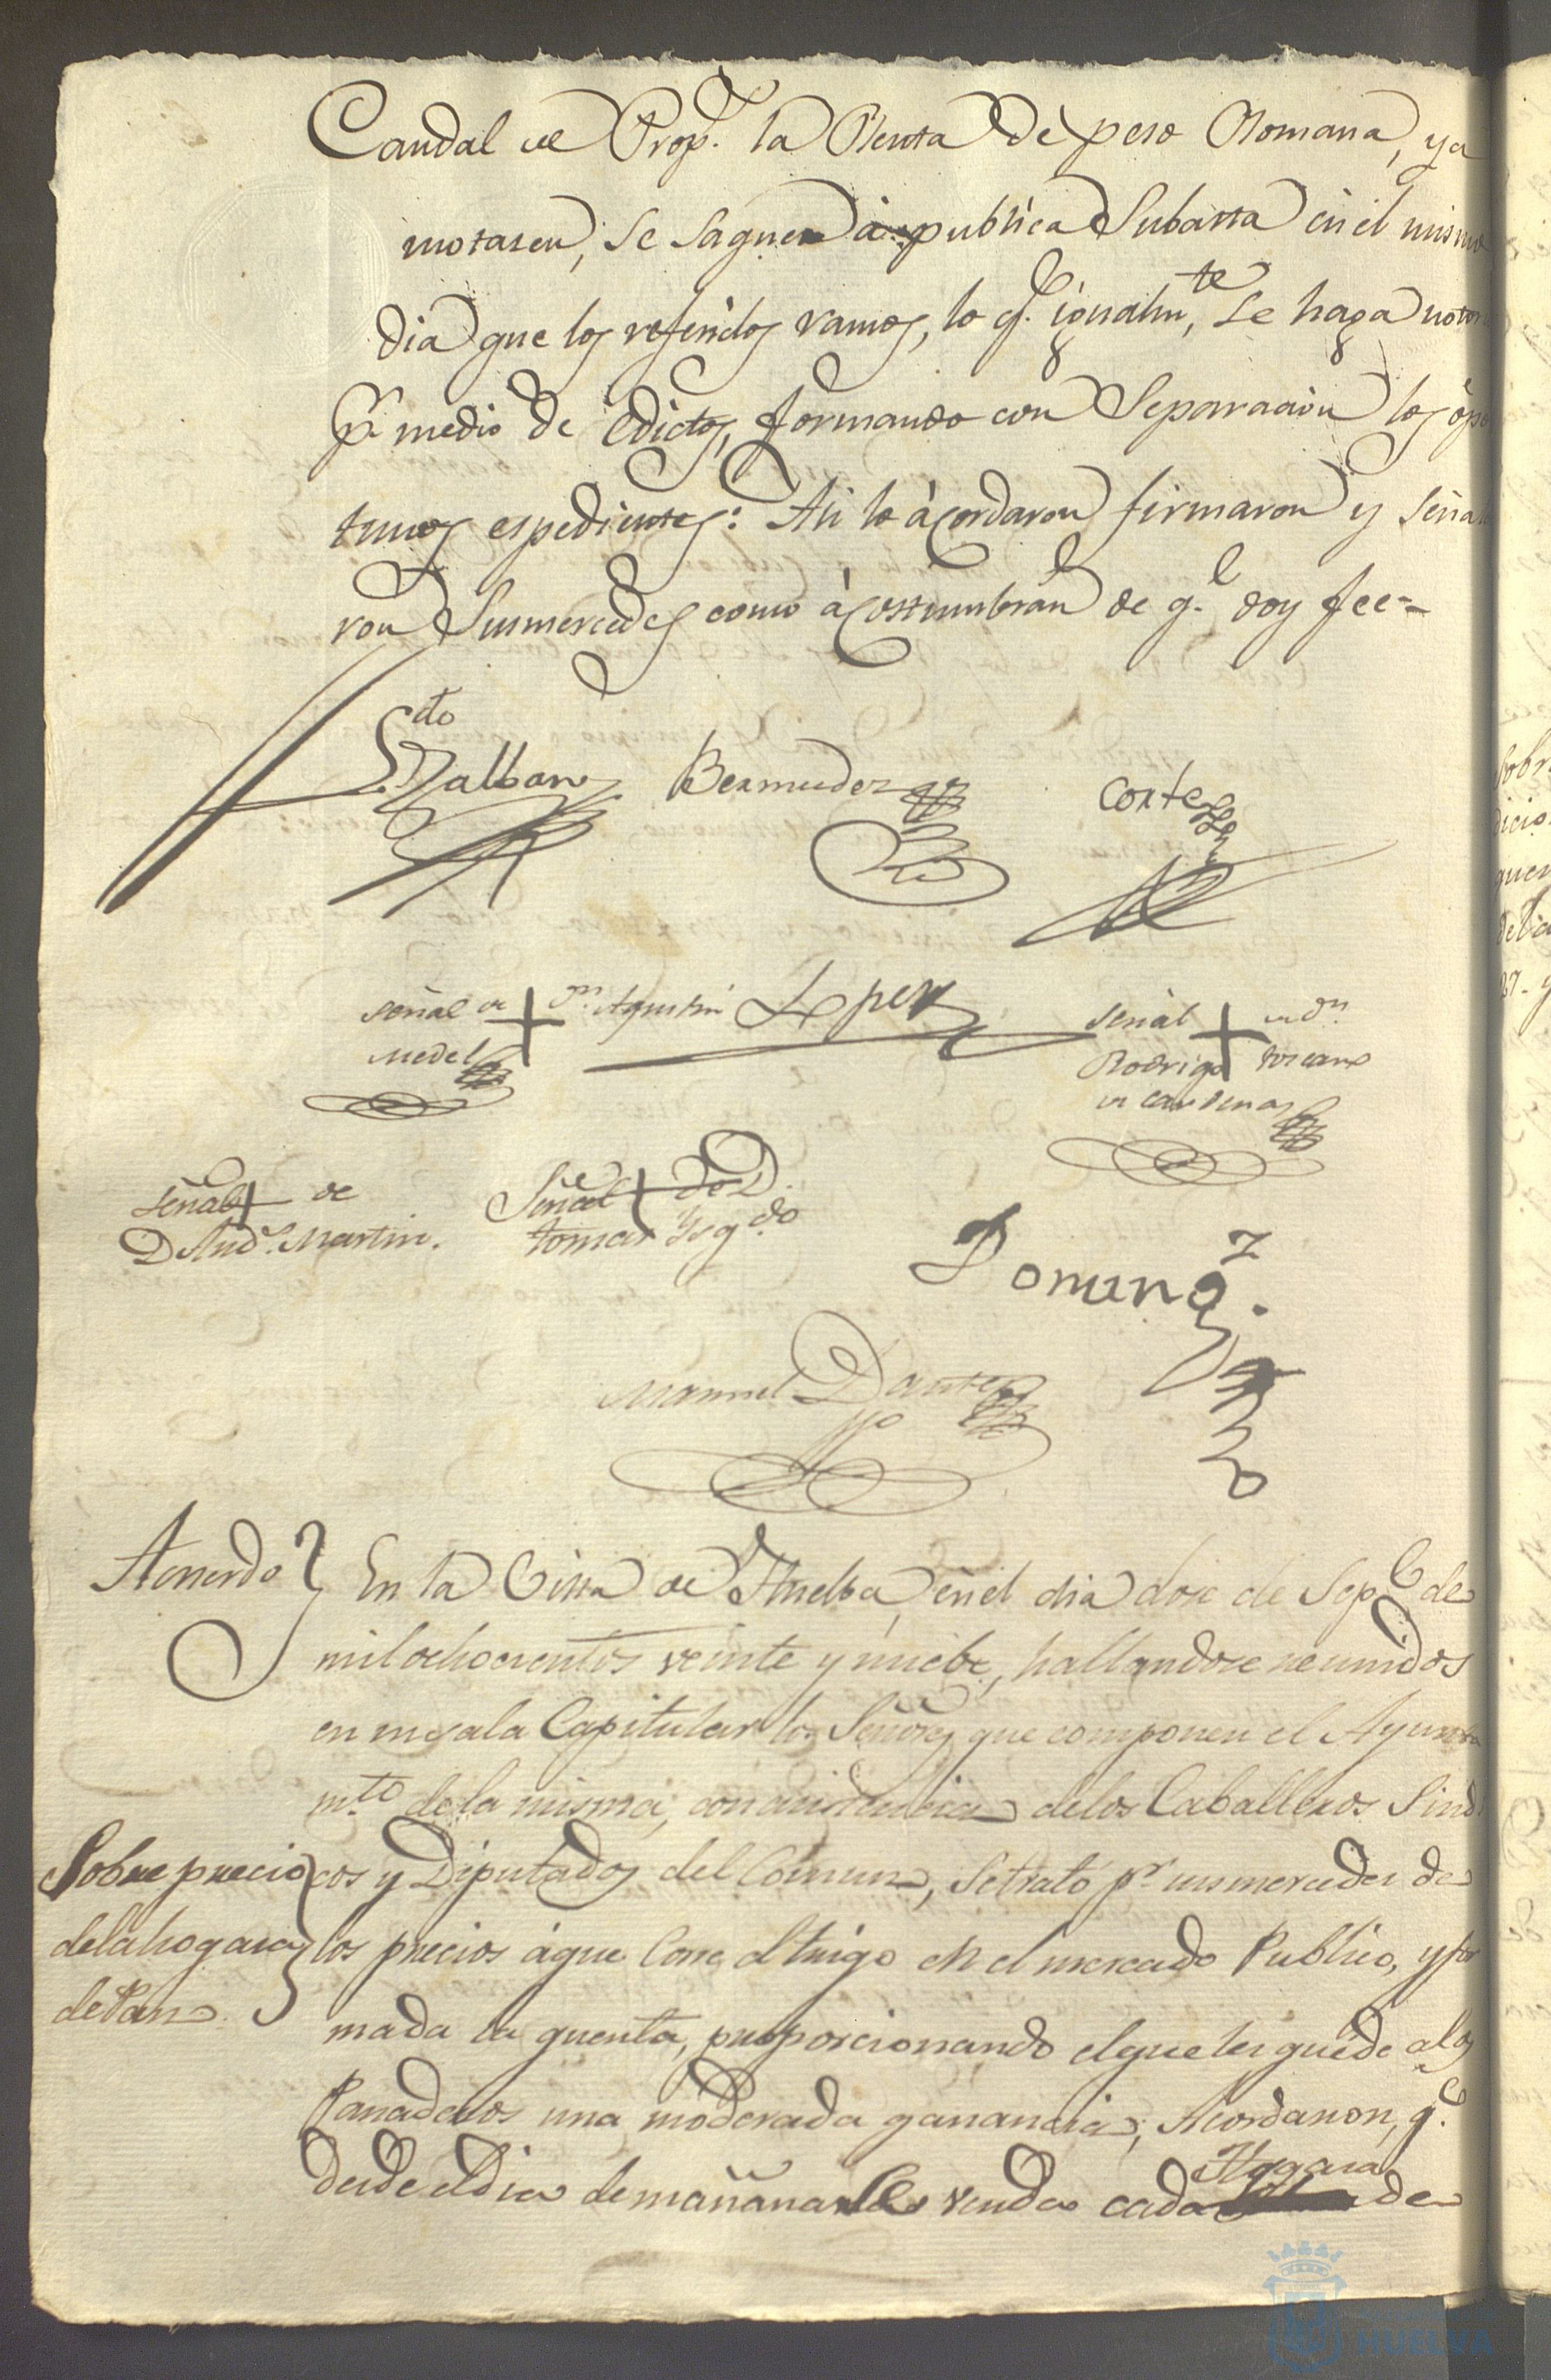 Caudal de Prop.s la Renta de peso Romana, y a
motasen, se saquen à publica Subasta en el mismo
dia que los referidos ramos, lo q.e igualm.te se haga notor
p.r medio de edictos, formando con Separacion los opor
tunos espedientes: Asi lo àcordaron firmaron y Seña
ron Sus mercedes como àcostumbran de q.e doy fee=
Bermudez Cortes
Señal de + Dn. Agustin Lopez Señal + de dn.
Medel Rodrigo toscano
de Cardenas
Señal + de Señal + de D.
D And.s Martin. tomas Ysq.do
Doming.z
Manuel Dante
Acuerdo En la Villa de Huelba, en el dia doce de Sep.e de
mil ochocientos veinte y nuebe, hallandose reunidos
en su sala Capitular los Señores que componen el Ayunta
m.to de la misma, con asistencia de los Caballeros Sindi
Sobre precio cos y Diputados del Comun, se trató p.r sus mercedes de
de la hogaza los precios á que Corre el trigo en el mercado Publico, y for
de Pan. mada la quenta, proporcionando el que les quede a los
Panaderos una moderada ganancia, Acordaron, q.e
desde el dia de mañana se venda cada Hogaza de
HUELVA